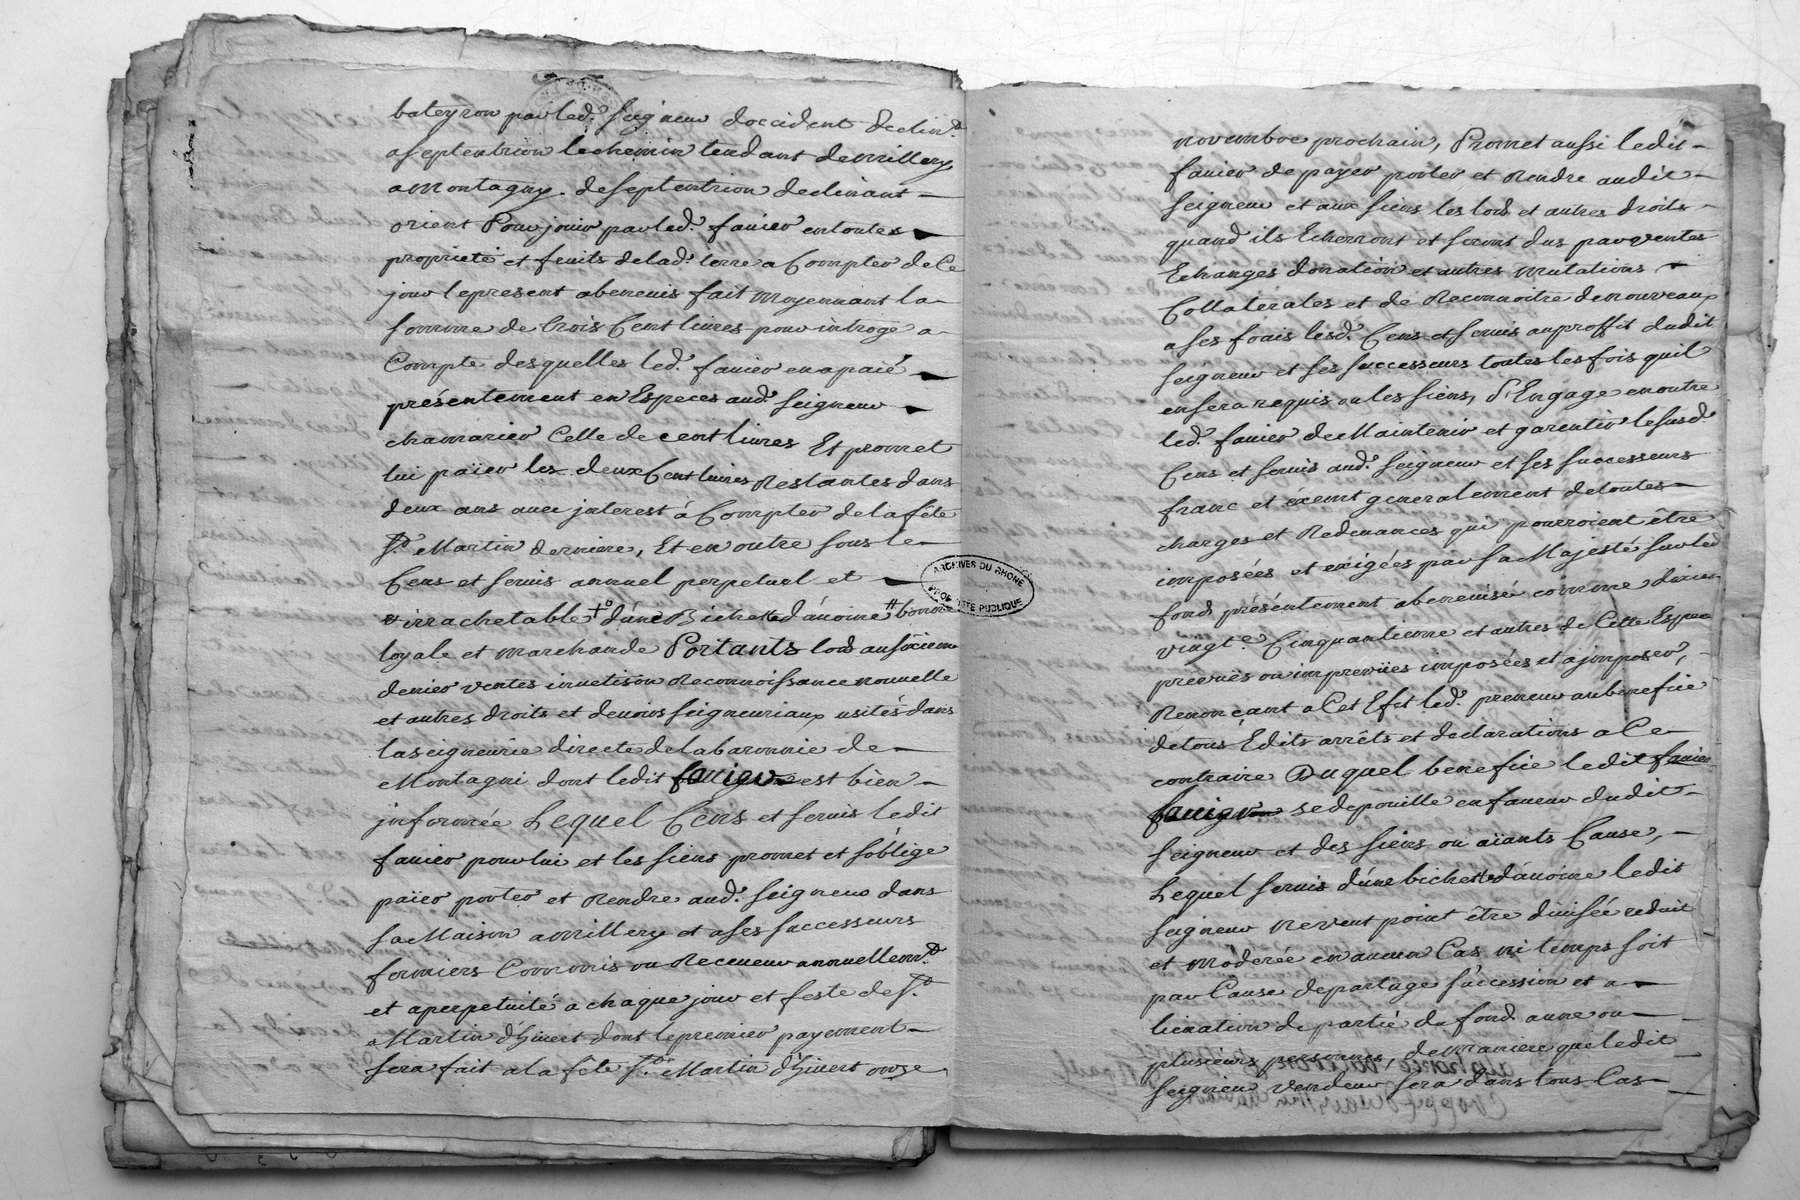 bateyron par led.t seigneur doccident declin.t
a septentrion le chemin tendant de millery
a montagny. de septentrion declinant
orient Pour jouir par led.t favier en toutes
propriété et fruits de lad.e terre a Compter de Ce
jour le present abenevis fait moyennant la
somme de trois Cent livres pour introge a
Compte desquelles led.t favier en a païé
présentement en Especes aud.t seigneur
chamarier Celle de cent livres Et promet
lui païer les deux Cent livres Restantes dans
deux ans avec jnterest á Compter de la fête
S.t Martin derniere, Et en outre sous le
Cens et servis annuel perpetuel et
& irrachetable +° d'une Bichette d'avoine # bonne
loyale et marchande Portants lods au sixieme
denier ventes investison Reconnoissance nouvelle
et autres droits et devoirs seigneuriaux usités dans
la seigneurie directe de la baronnie de
Montagni dont ledit favier est bien
jnformée Lequel Cens et servis ledit
favier pour lui et les siens promet et s'oblige
païer porter et Rendre aud.t seigneur dans
sa Maison a millery et a ses successeurs
fermiers Commis ou Receveur annuellem.t
et a perpetuité a chaque jour et feste de S.t
Martin d'hivert dont le premier payement
sera fait a la fête S.t Martin d'hivert onze
novembre prochain, Promet aussi ledit
favier de payer porter et Rendre audit
seigneur et aux siens les lods et autres droits
quand ils Echerront et seront dus par ventes
Echanges donation et autres mutations
Collaterales et de Reconnoitre de nouveau
a ses frais lesd.ts Cens et servis au proffit dudit
seigneur et ses successeurs toutes les fois quil
en sera requis ou les siens, S'Engage en outre
led.t favier de Maintenir et garentir le susd.t
Cens et servis aud.t seigneur et ses successeurs
franc et exemt generalement de toutes
charges et Redevances qui pourroient être
imposées et exigées par sa Majesté sur led.t
fond présentement abenevisé comme dixie.
vingt.e Cinquantieme et autres de Cette Espece
prevuës ou imprevües imposées et a jmposer,
Renonçant a Cet Efet led.t preneur au benefice
de tous Edits arrêts et déclarations a Ce
contraire Duquel benefice ledit favier
favier se depouille en faveur dudit
seigneur et des siens ou aïants Cause,
Lequel servis d'une bichette d'avoine ledit
seigneur ne veut point être divisée reduit
et modérée en aucun Cas ni temps soit
par Cause de partage succession et a
lienation de partie du fond a une ou
plusieurs personnes, de Maniere que ledit
seigneur vendeur sera dans tous Cas
ARCHIVES DU RHONE
PROPRIETE PUBLIQUE